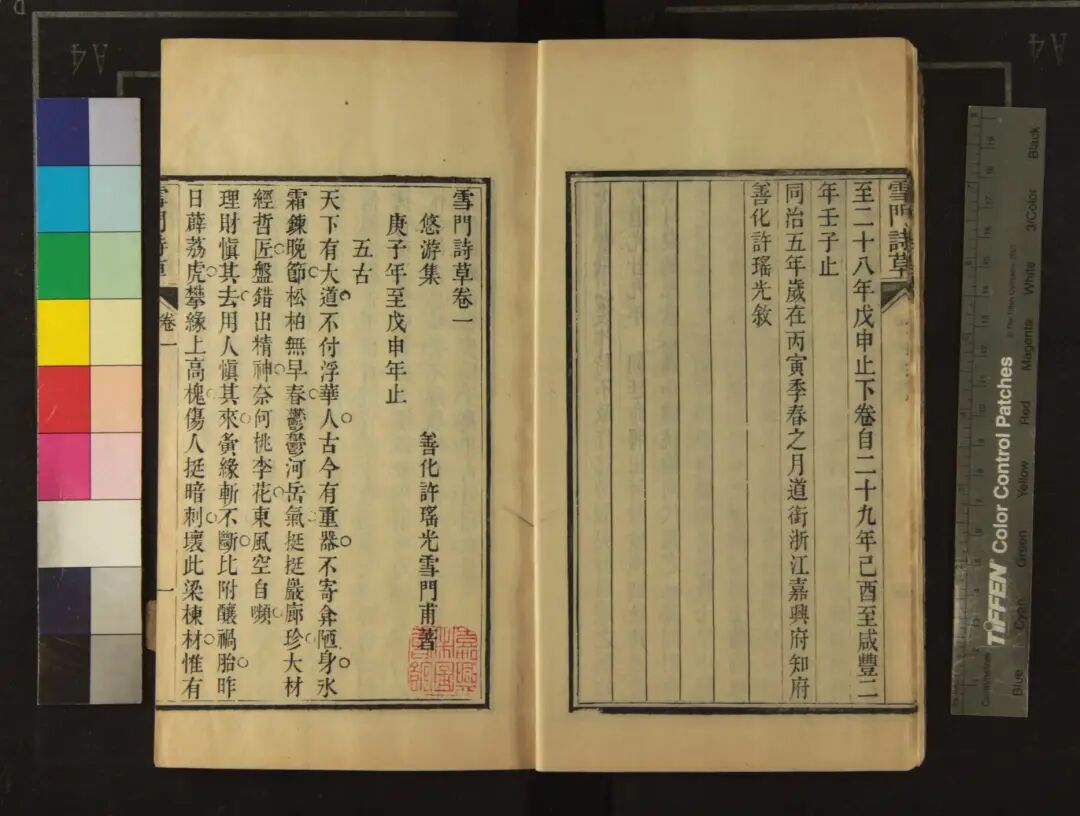 雪門詩草
至二十八年戊申止下卷自二十九年己酉至咸豐二
年壬子止
同治五年歲在丙寅季春之月道銜浙江嘉興府知府
善化許瑤光敘
雪門詩草卷一
悠游集 善化許瑤光雪門甫著
庚子年至戊申年止
五古
天下有大道不付浮華人古今有重器不寄弇陋身氷
霜鍊晚節松柏無早春鬱鬱河岳氣挺挺嚴廊珍大材
經哲匠盤錯出精神奈何桃李花東風空自嚬
理財愼其去用人愼其來夤緣斬不斷比附釀禍胎昨
日薜荔虎攀緣上高槐傷人挺暗刺壞此梁棟材惟有
雪門詩草 卷一 一
TIFFEN Color Control Patches
Blue Cyan Green Yellow Red Magenta White 3/Color Black
Centimetres
A4
A4